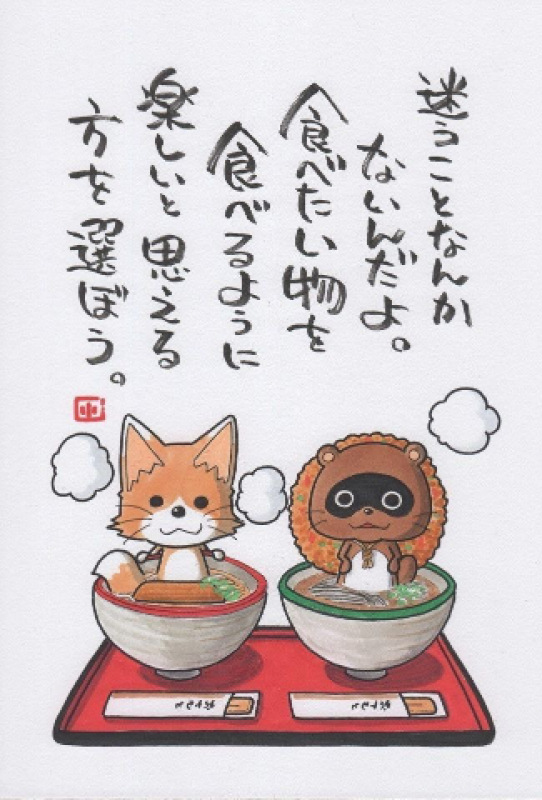 迷うことなんか
ないんだよ。
食べたい物を
食べるように
楽しいと思える
方を選ぼう。
おてもと
おてもと